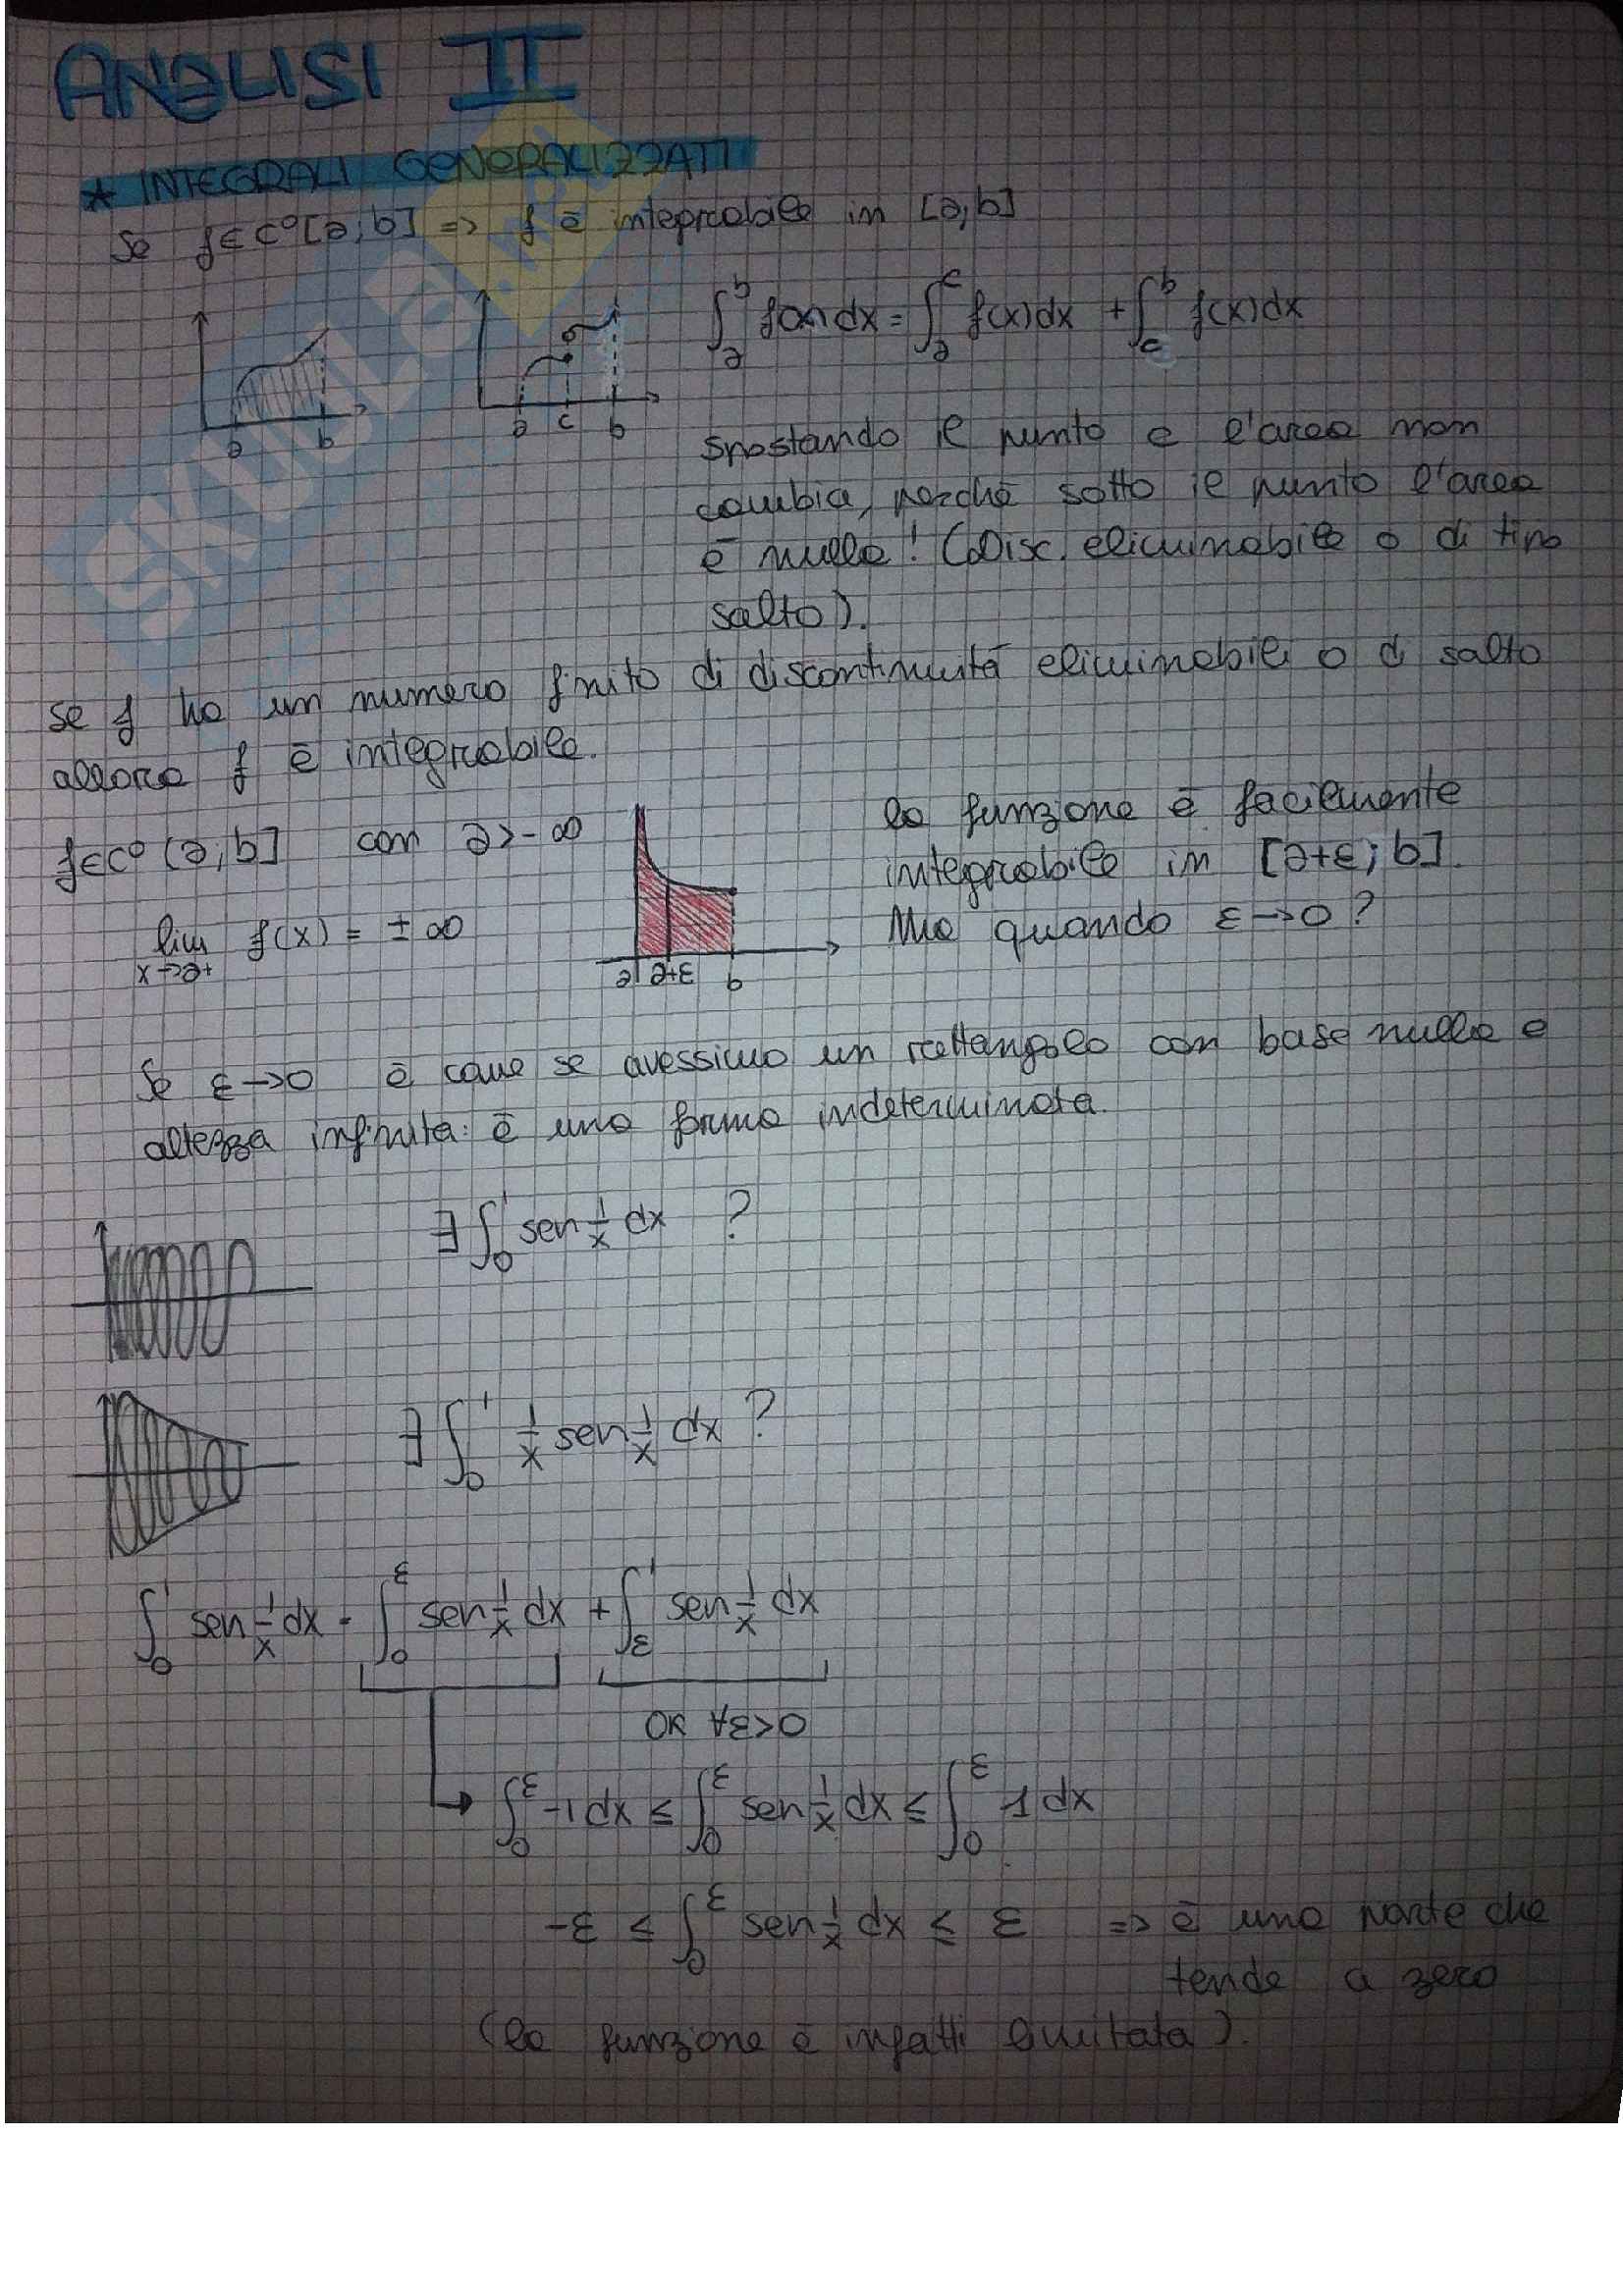 ANALISI II
* INTEGRALI GENERALIZZATI
Se f∈C⁰[a;b] => f è integrabile in [a;b]
∫_a^b f(x)dx = ∫_a^c f(x)dx + ∫_c^b f(x)dx
a b
a c b
spostando il punto c l'area non
cambia, perché sotto il punto l'area
è nulla! (Disc. eliminabile o di tipo
salto).
se f ha un numero finito di discontinuità eliminabili o di salto
allora f è integrabile.
f∈C⁰(a;b] con a>-∞
lim x→a+ f(x) = ±∞
a a+ε b
la funzione è facilmente
integrabile in [a+ε;b].
Ma quando ε→0?
Se ε→0 è come se avessimo un rettangolo con base nulla e
altezza infinita: è una forma indeterminata.
∃ ∫_0^1 sen 1/x dx ?
∃ ∫_0^1 1/x sen 1/x dx ?
∫_0^1 sen 1/x dx = ∫_0^ε sen 1/x dx + ∫_ε^1 sen 1/x dx
OK ∀ε>0
∫_0^ε -1 dx ≤ ∫_0^ε sen 1/x dx ≤ ∫_0^ε 1 dx
-ε ≤ ∫_0^ε sen 1/x dx ≤ ε => è una parte che
tende a zero
(la funzione è infatti limitata).
SKUOLA.net